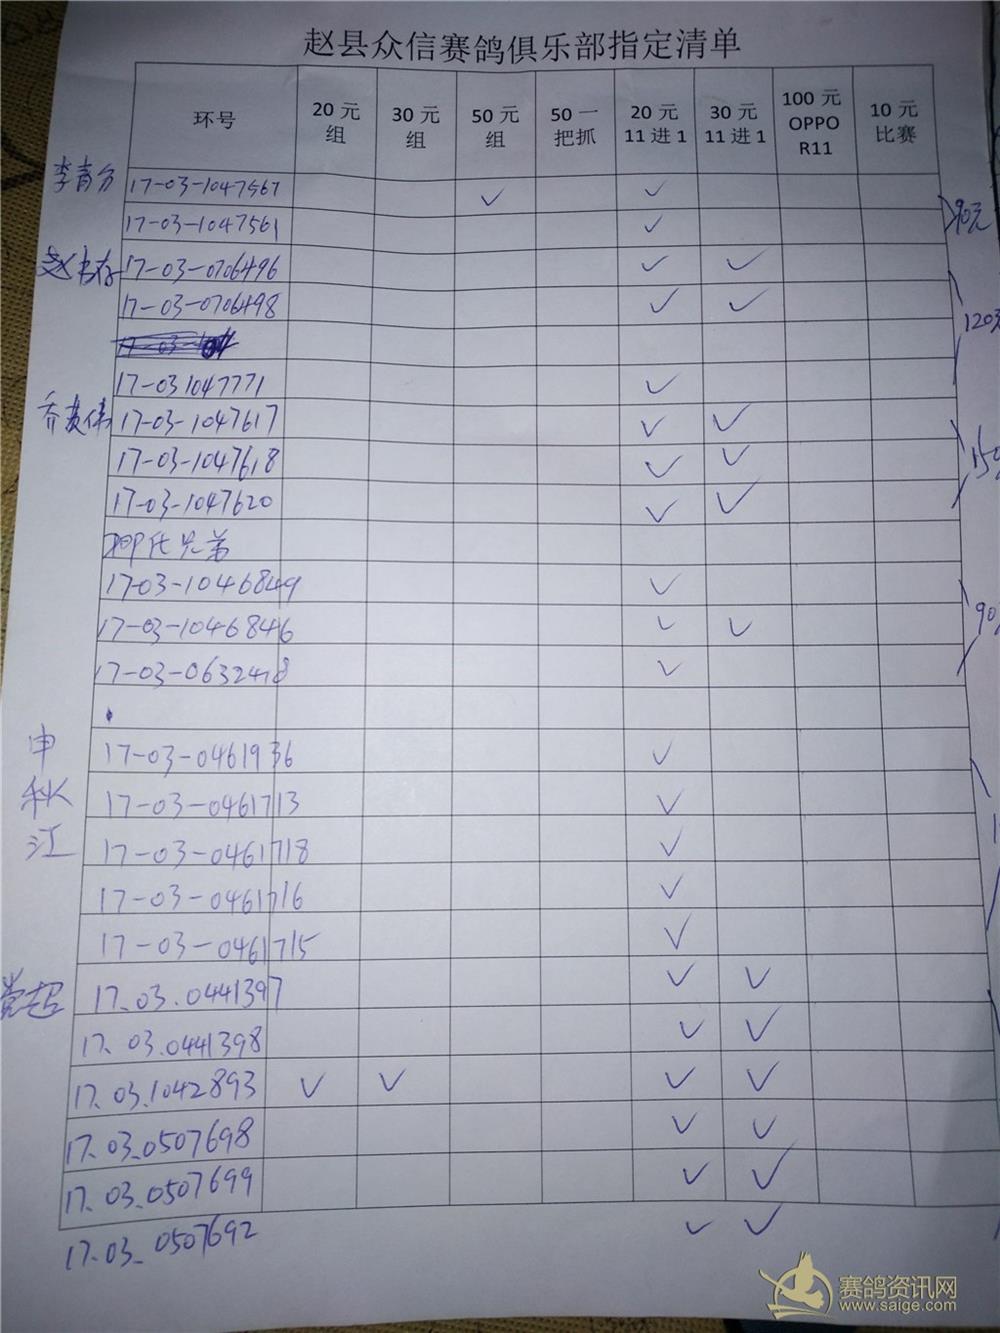 赵县众信赛鸽俱乐部指定清单
环号 20元组 30元组 50元组 50一把抓 20元11进1 30元11进1 100元OPPO R11 10元比赛
17-03-1047567 ✓ ✓
17-03-1047561 ✓ 90元
17-03-0706496 ✓ ✓
17-03-0706498 ✓ ✓ 120
17-031047771 ✓
17-03-1047617 ✓ ✓
17-03-1047618 ✓ ✓ 150
17-03-1047620 ✓ ✓
氏兄弟
17-03-1046849 ✓
17-03-1046846 ✓ ✓ 90
17-03-0632418 ✓
申秋江
17-03-0461936 ✓
17-03-0461713 ✓
17-03-0461718 ✓
17-03-0461716 ✓
17-03-0461715 ✓
17.03.0441397 ✓ ✓
17.03.0441398 ✓ ✓
17.03.1042893 ✓ ✓ ✓ ✓
17.03.0507698 ✓ ✓
17.03.0507699 ✓ ✓
17.03.0507692 ✓ ✓
赛鸽资讯网
www.saige.com